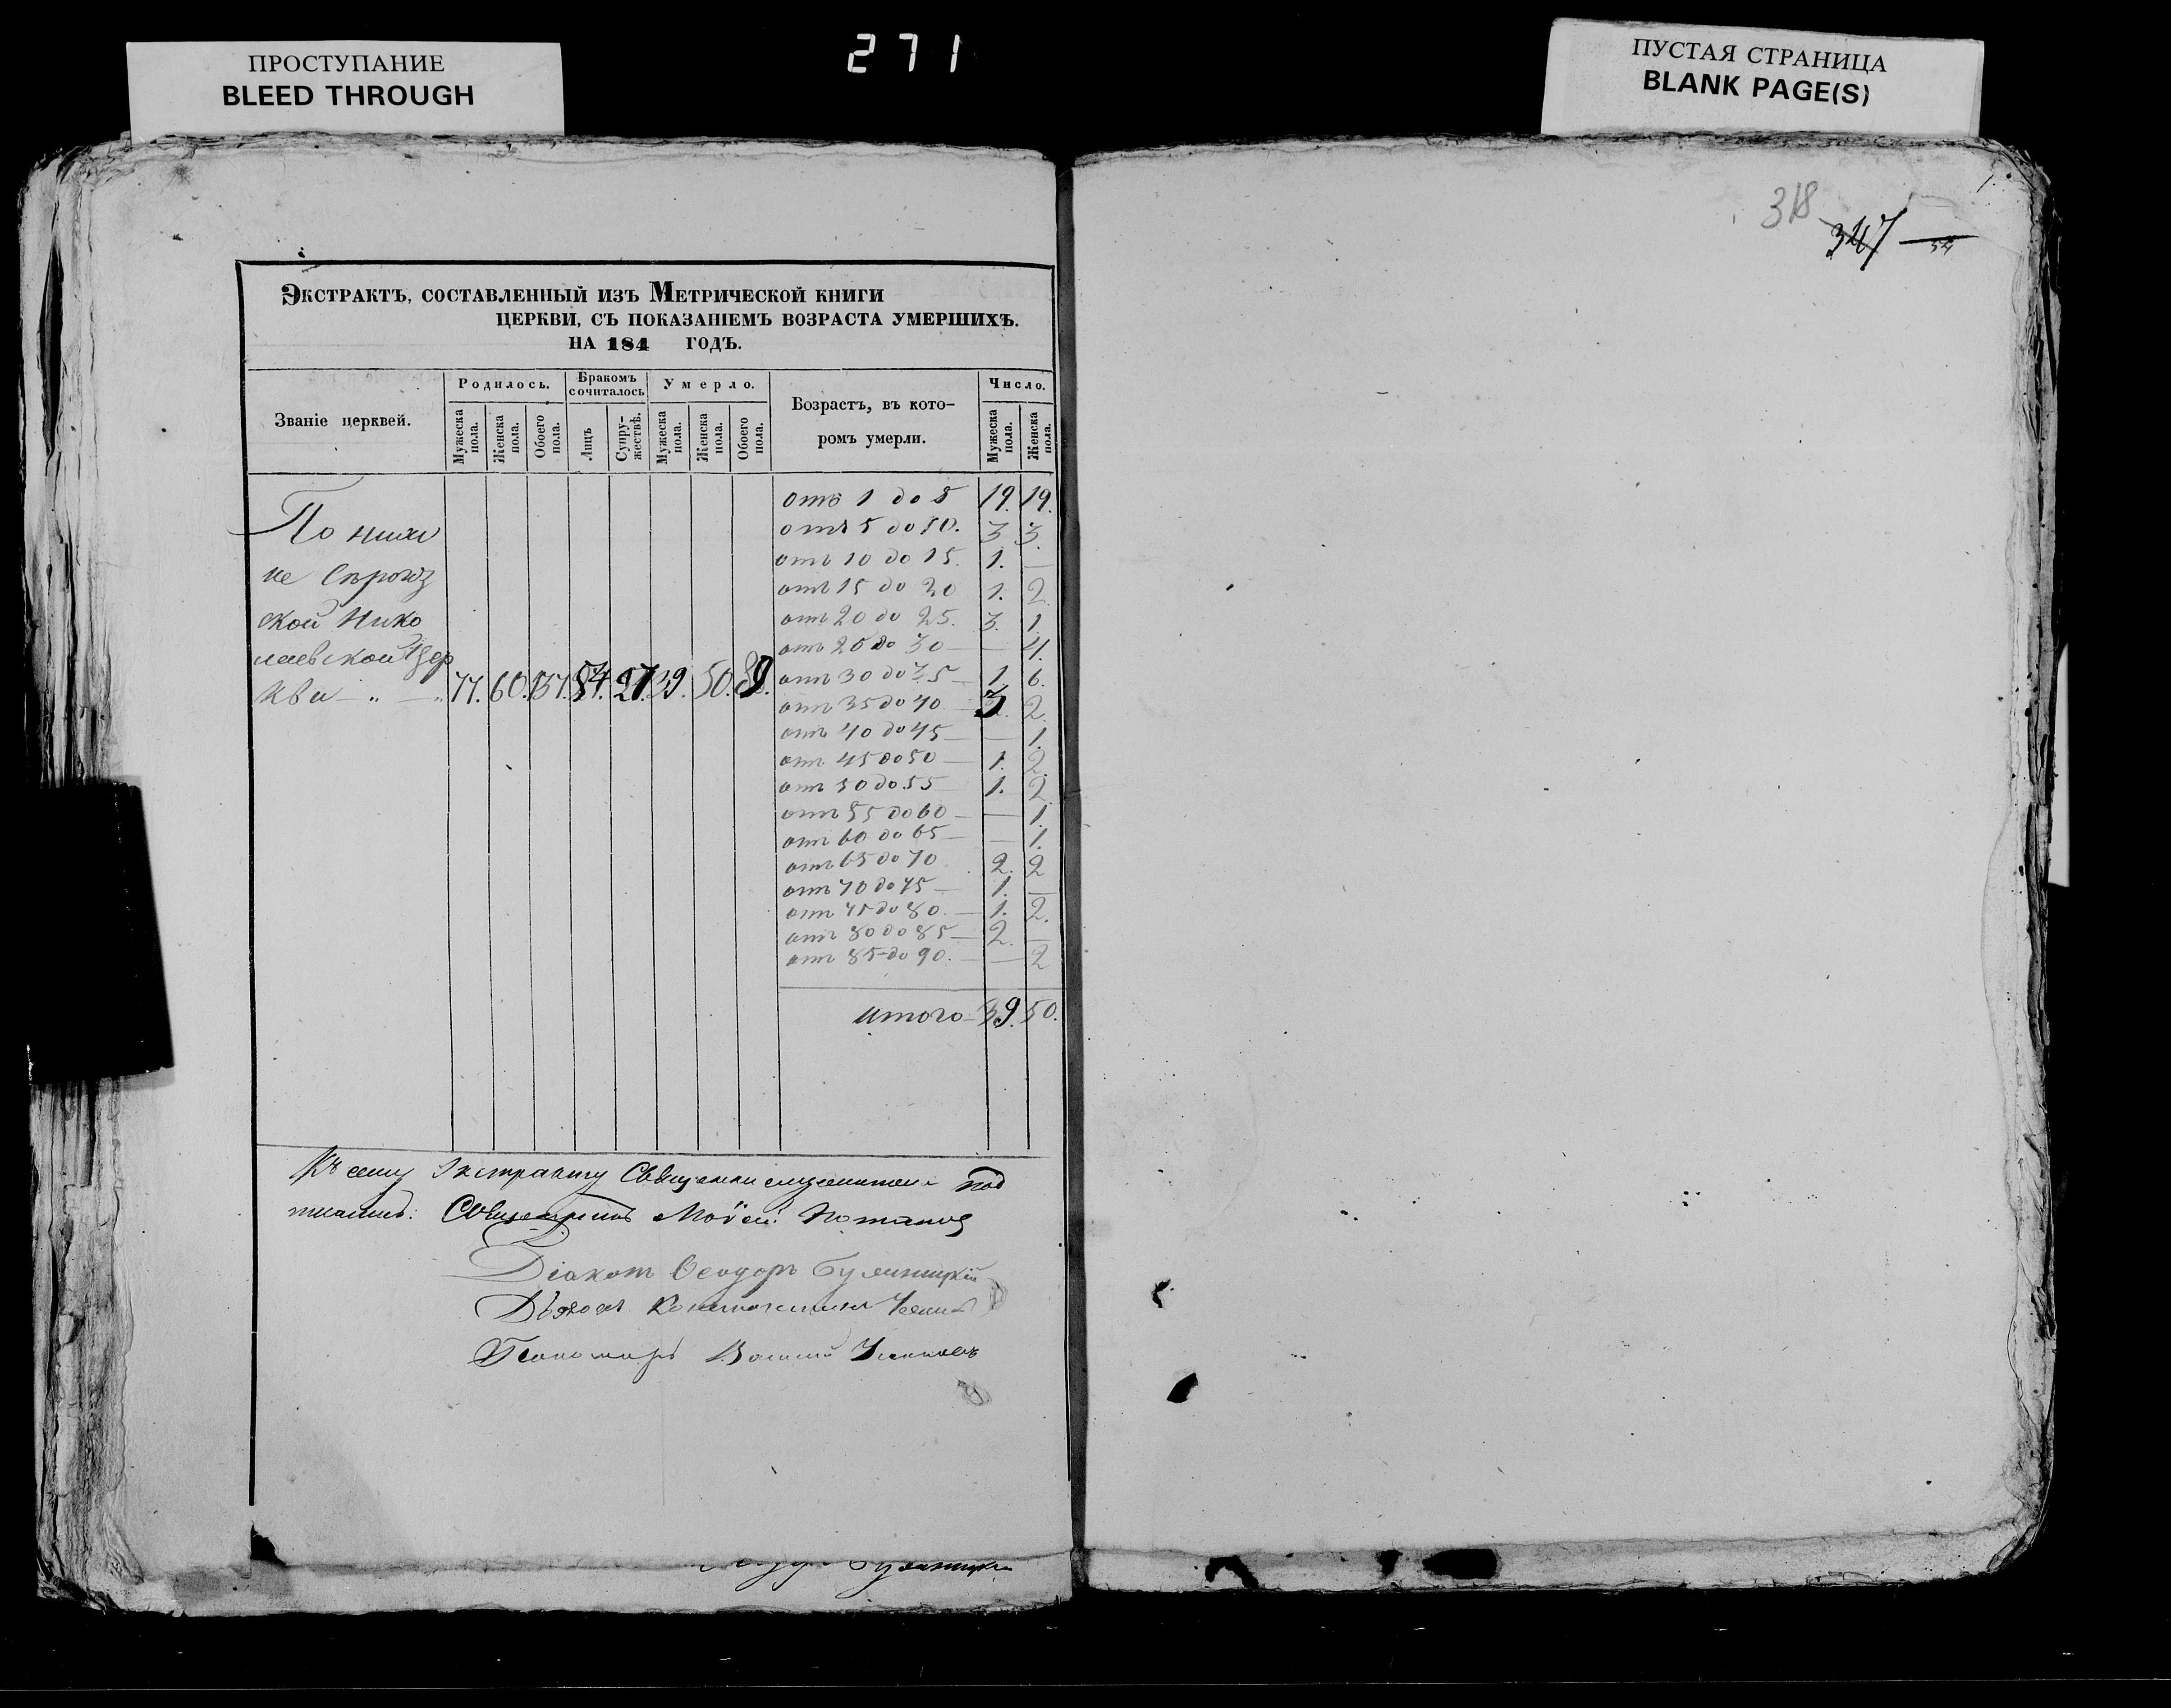 ПРОСТУПАНИЕ
BLEED THROUGH
271
ПУСТАЯ СТРАНИЦА
BLANK PAGE(S)
318
347
Экстрактъ, составленный изъ Метрической книги
церкви, съ показаніемъ возраста умершихъ.
на 184 годъ.
Званіе церквей.
Родилось.
Бракомъ сочиталось
Умерло.
Возрастъ, въ кото-
ромъ умерли.
Число.
Мужеска пола.
Женска пола.
Обоего пола.
Лицъ
Супру-жествъ.
Мужеска пола.
Женска пола.
Обоего пола.
Мужеска пола.
Женска пола.
По
ской Нико
лаевской Цер
кви — „ — „ 77. 60. 137. 54. 27. 39. 50. 89.
отъ 1 до 5 19. 19.
отъ 5 до 10. 3 3.
отъ 10 до 15. 1. —
отъ 15 до 20 1. 2.
отъ 20 до 25. 3. 1.
отъ 25 до 30 — — 4.
отъ 30 до 35 — 1. 6.
отъ 35 до 40 — 3. 2.
отъ 40 до 45 — — 1.
отъ 45 до 50 — 1. 2.
отъ 50 до 55 — 1. 2
отъ 55 до 60 — — 1.
отъ 60 до 65 — — 1.
отъ 65 до 70 2. 2
отъ 70 до 75 — 1. —
отъ 75 до 80. — 1. 2.
отъ 80 до 85 — 2. —
отъ 85 до 90. — — 2
итого — 39. 50.
Къ сему Экстракту Священнослужители под
писались: Священникъ Моѵсей Потаповъ
Діаконъ Ѳеодоръ
Дьячокъ Константинъ
Пономарь Василій